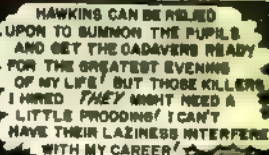 HAWKINS CAN BE RELIED
UPON TO SUMMON THE PUPILS
AND GET THE CADAVERS READY
FOR THE GREATEST EVENING
OF MY LIFE! BUT THOSE KILLERS
I HIRED THEY MIGHT NEED A
LITTLE PRODDING! I CAN'T
HAVE THEIR LAZINESS INTERFERE
WITH MY CAREER!